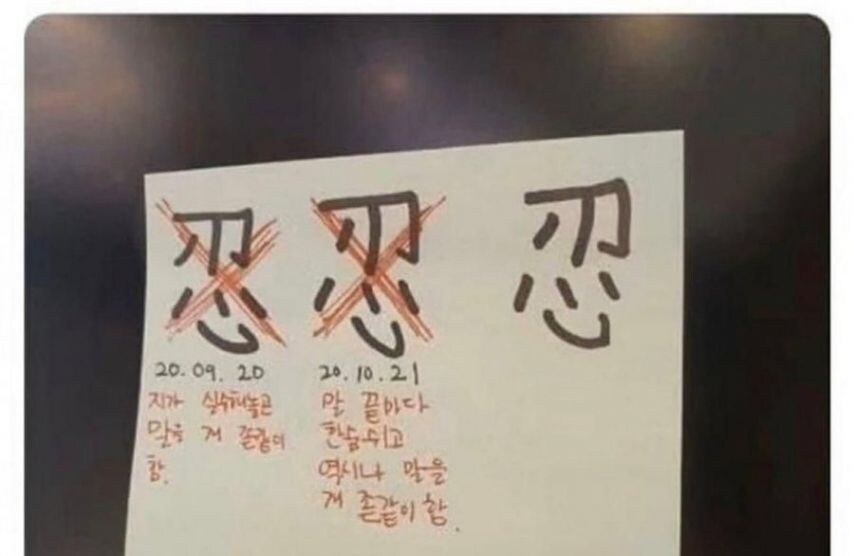 忍 忍 忍
20.09.20
지가 실수해놓곤
말을 저 존같이
함.
20.10.21
말 끝마다
한숨쉬고
역시나 말을
개 존같이 함.